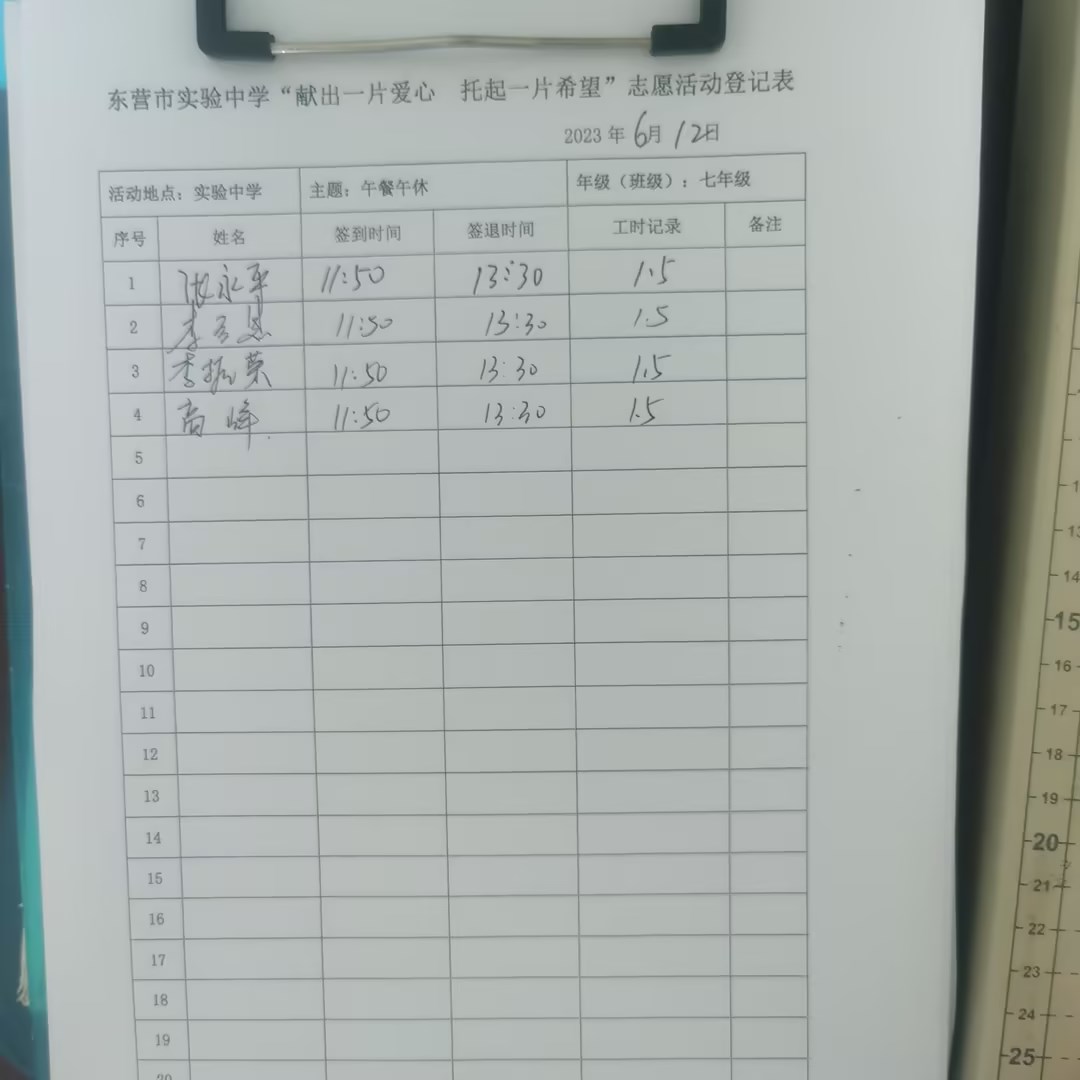 东营市实验中学“献出一片爱心 托起一片希望”志愿活动登记表
2023 年 6月 12日
活动地点：实验中学 主题：午餐午休 年级（班级）：七年级
序号 姓名 签到时间 签退时间 工时记录 备注
1 张永平 11:50 13:30 1.5
2 李 11:50 13:30 1.5
3 李振荣 11:50 13:30 1.5
4 高峰 11:50 13:30 1.5
5
6
7
8
9
10
11
12
13
14
15
16
17
18
19
20
13
14
15
16
17
18
19
20
21
22
23
24
25